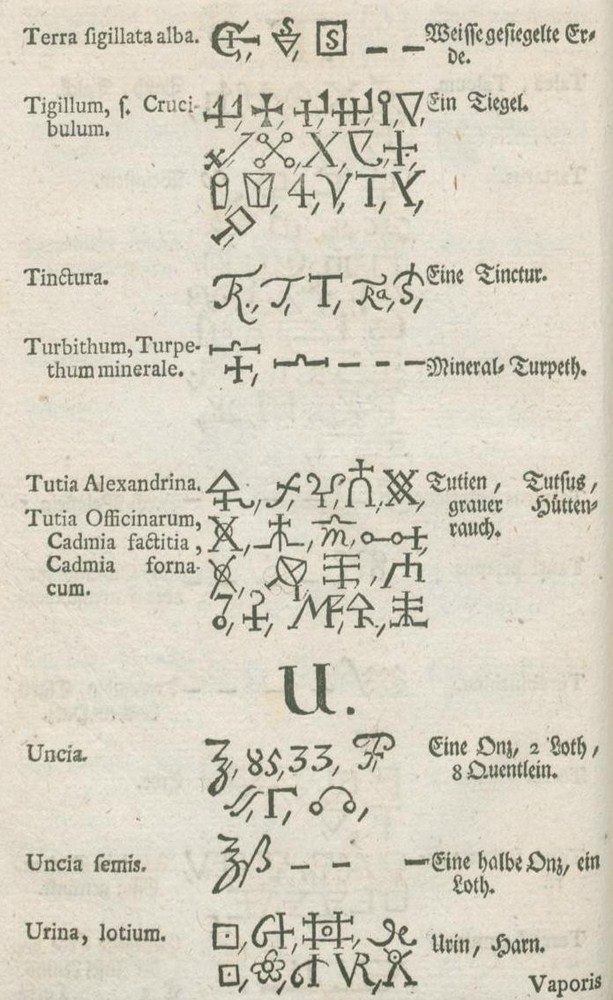 Terra ſigillata alba. Weiſſe geſiegelte Er-
de.
Tigillum, ſ. Cruci- Ein Tiegel.
bulum.
Tinctura. Eine Tinctur.
Turbithum, Turpe-
thum minerale. Mineral-Turpeth.
Tutia Alexandrina. Tutien, Tutſus,
Tutia Officinarum, grauer Hütten-
Cadmia factitia, rauch.
Cadmia forna-
cum.
U.
Uncia. Eine Onz, 2 Loth,
8 Quentlein.
Uncia ſemis. Eine halbe Onz, ein
Loth.
Urina, lotium. Urin, Harn.
Vaporis